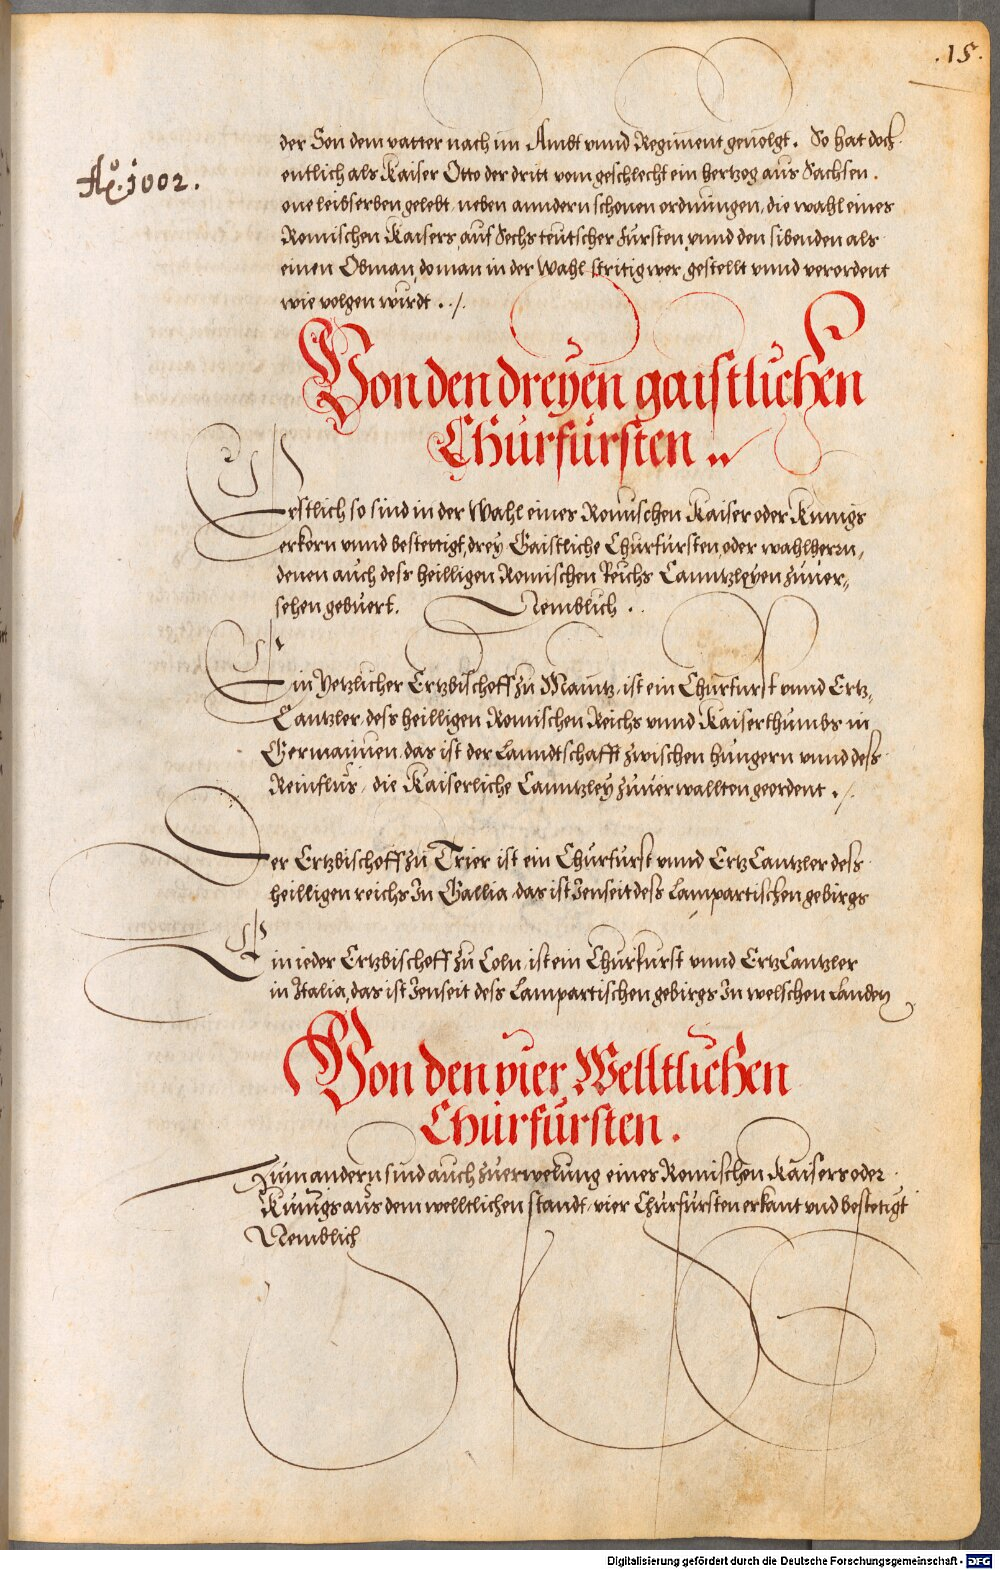 .15.
der Son dem vatter nach im Ambt vnnd Regiment geuolgt. So hat doch
entlich als Kaiser Otto der dritt vom geschlecht ein hertzog aus Sachsen.
Ao. 1002.
one leibserben gelebt, neben anndern schonen ordnungen, die wahl eines
Romischen Kaisers, auf Sechs teutscher Fursten, vnnd den sibenden als
einen Obman, do man in der Wahl stritig wer, gestellt vnnd verordent
wie volgen wirdt ./.
Von den dreyen gaistlichen
Churfürsten ..
Erstlich so sind in der Wahl eines Romischen Kaiser oder Kunigs
erkorn vnnd bestettigt, drey Gaistliche Churfursten, oder wahlherrn,
denen auch dess heilligen Romischen Reichs Canntzleyen zuuer=
sehen gebuert. Nemblich .
Ein yetzlicher Ertzbischoff zu Maintz, ist ein Churfurst vnnd Ertz=
Cantzler, dess heilligen Romischen Reichs vnnd Kaiserthumbs in
Germanien, das ist der Lanndtschafft zwischen Hungern vnnd dess
Reinflus, die Kaiserliche Canntzley zuuerwallten geordent ./.
Der Ertzbischoff zu Trier ist ein Churfurst vnnd ErtzCantzler dess
heilligen reichs In Gallia, das ist Jenseit dess Lampartischen gebirgs
Ein ieder Ertzbischoff zu Coln, ist ein Churfurst vnnd ErtzCantzler
in Italia, das ist Jenseit dess Lampartischen gebirgs In welschen Landen
Von den vier Welltlichen
Churfürsten .
Zum andern sind auch zu erwelung eines Romischen Kaisers oder
Kunigs aus dem welltlichen standt, vier Churfursten erkant vnd bestetigt
Nemblich
Digitalisierung gefördert durch die Deutsche Forschungsgemeinschaft - DFG